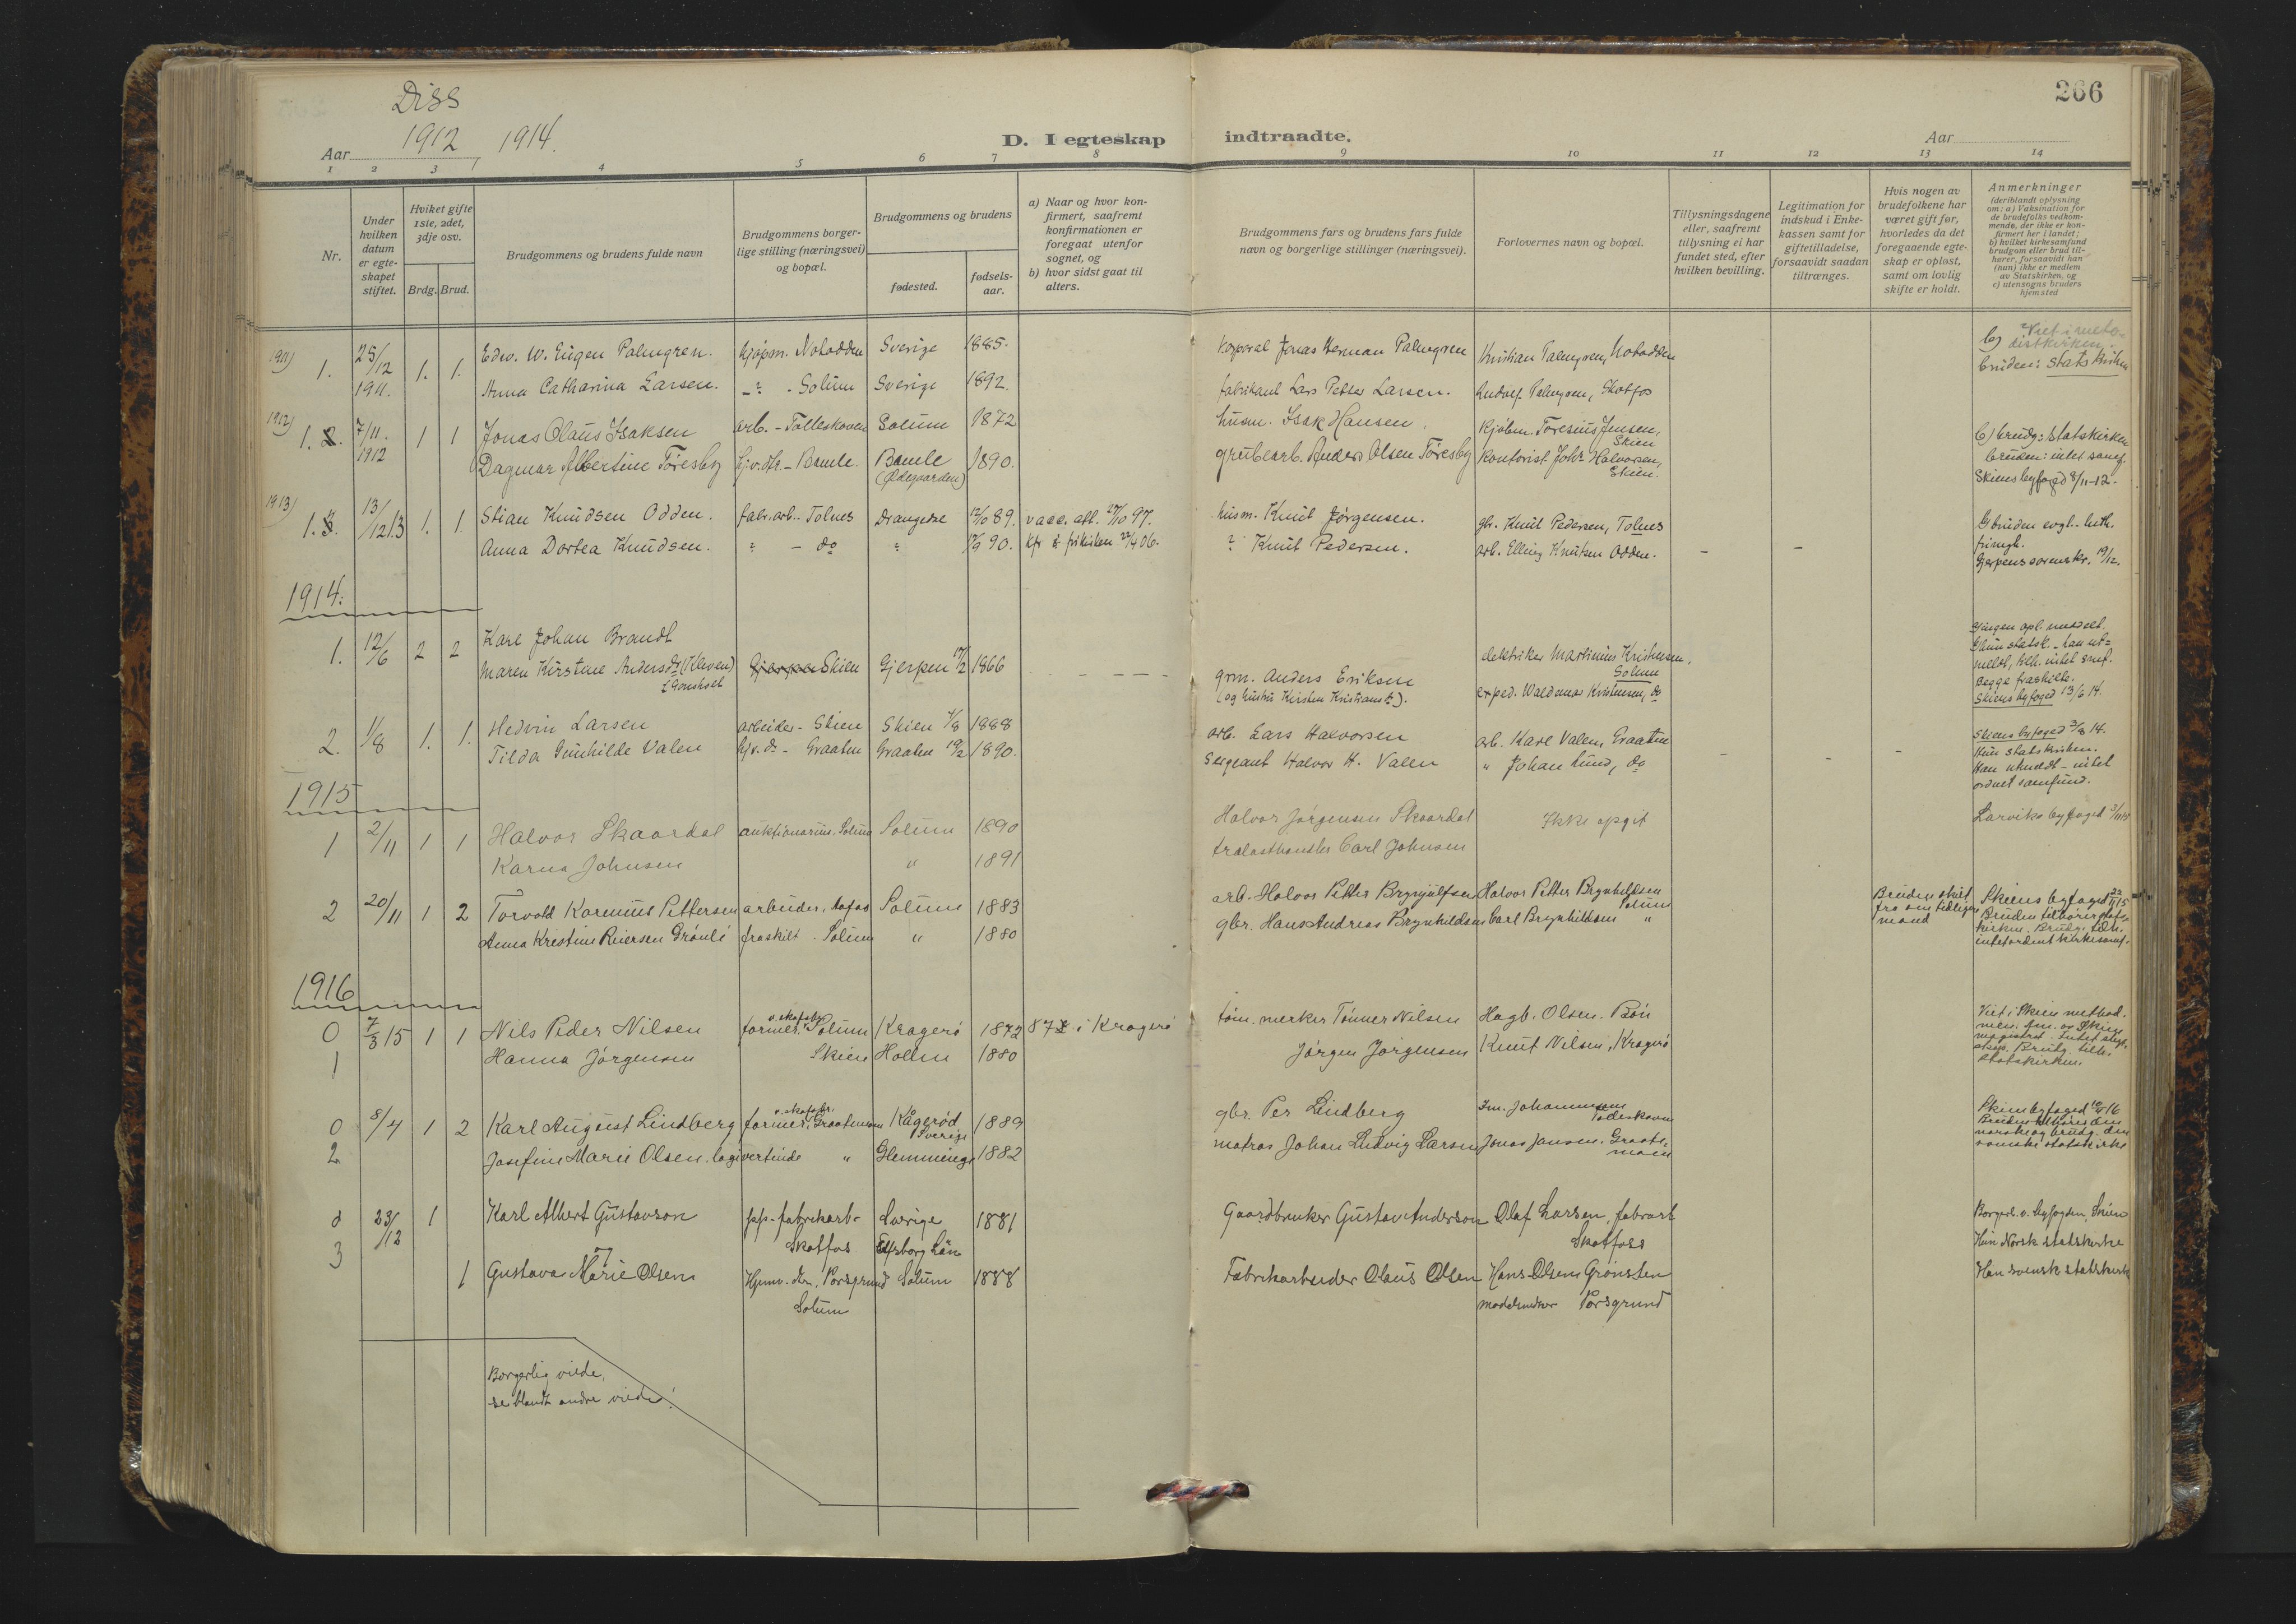 Diss
266
Aar 1912, 1914.
D. I egteskap indtraadte.
Aar
1 2 3 4 5 6 7 8 9 10 11 12 13 14
Nr.
Under hvilken datum er egteskapet stiftet.
Hviket gifte 1ste, 2det, 3dje osv.
Brdg. Brud.
Brudgommens og brudens fulde navn
Brudgommens borgerlige stilling (næringsvei) og bopæl.
Brudgommens og brudens
fødested.
fødselsaar.
a) Naar og hvor konfirmert, saafremt konfirmationen er foregaat utenfor sognet, og
b) hvor sidst gaat til alters.
Brudgommens fars og brudens fars fulde navn og borgerlige stillinger (næringsvei).
Forlovernes navn og bopæl.
Tillysningsdagene eller, saafremt tillysning ei har fundet sted, efter hvilken bevilling.
Legitimation for indskud i Enkekassen samt for giftetilladelse, forsaavidt saadan tiltrænges.
Hvis nogen av brudefolkene har været gift før, hvorledes da det foregaaende egteskap er opløst, samt om lovlig skifte er holdt.
Anmerkninger
(deriblandt oplysning om: a) Vaksination for de brudefolks vedkommende, der ikke er konfirmert her i landet;
b) hvilket kirkesamfund brudgom eller brud tilhører, forsaavidt han (hun) ikke er medlem av Statskirken, og
c) utensogns bruders hjemsted
1911) 1. 25/12 1911. 1. 1. Edw. W. Eugen Palmgren. kjøpm. Notodden Sverige 1885. Korporal Jonas Herman Palmgren Kristian Palmgren, Notodden b) Viet i metodistkirken.
Anna Catharina Larsen. Solum Sverige 1892. fabrikant Lars Petter Larsen. Ludvig Palmgren, Skotfos bruden: Statskirken
1912) 1. 7/11. 1912 1 1 Jonas Olaus Isaksen arb. - Tolleskoven Solum 1872 husm. Isak Hansen. Kjøbm. Toresius Jensen, Skien b) brudg: Statskirken
Dagmar Albertine Töresby hjv. dtr. - Bamle. Bamle (Ødegaarden) 1890. grubearb. Anders Olsen Töresby Kontorist Johs Halvorsen, Skien. bruden: intet samf.
Skiens byfoged 8/11-12.
1913) 1. 13/12 13 1. 1. Stian Knudsen Odden. fabr.arb. Tolnes Drangedal 12/10 89. vacc. att. 27/10 97. husm. Knut Jørgensen. gbr. Knut Pedersen, Tolnes bruden evgl.-luth. frimgh.
Anna Dortea Knudsen. " - do " 17/9 90. Kfr i frikirken 22/4 06. " Knut Pedersen. arb. Elling Knutsen Odden. - - Gjerpens sorenskr. 19/12.
1914:
1. 12/6 2 2 Karl Johan Brandt elektriker Martinius Kristensen, Solum
Maren Kirstine Andersdr (Kleven) Skien Gjerpen 17/2 1866 grm. Anders Eriksen exped. Waldemar Kristensen, do
(og hustru Kirsten Kristiansdr).
Begge fraskilte.
Skiens byfoged 13/6 14.
2. 1/8 1. 1. Hedvin Larsen arbeider - Skien Skien 4/8 1888 arb. Lars Halvorsen arb. Karl Valen, Graaten Skiens byfoged 3/8 14.
Tilda Gunhilde Valen hjv. dr - Graaten Graaten 19/2 1890. Sergeant Halvor H. Valen " Johan Lund, do - - - Hun statskirken.
Han utmeldt - intet ordnet samfund.
1915
1 2/11 1 1 Halvor Skaardal auktionarius. Solum Solum 1890 Halvor Jørgensen Skaardal Ikke opgit Larviks byfoged
Karna Johnsen " 1891 trælasthandler Carl Johnsen
2 20/11 1 2 Torvald Karenius Pettersen arbeider, Solum 1883 arb. Halvor Petter Brynjulfsen Halvor Petter Brynhildsen Solum Bruden skilt fra sin tidligere mand Skiens byfoged 22/11 15
Anna Krestine Reiersen Grönli fraskilt. Solum " 1880 gbr. Hans Andreas Brynhildsen Carl Brynhildsen " Bruden tilhører statskirken. Brudg. tilh. intet ordent kirkesamf.
1916
0 1 7/3 15 1 1 Nils Peder Nilsen former v. Solum Kragerö 1872 87 i Kragerö töm. merker Tönner Nilsen Hagb. Olsen. Bön Viet i Skiens method.
Hanna Jörgensen Skien Hollen 1880 Jörgen Jörgensen Knut Nilsen, Kragerö
Brudg. tilh. Statskirken.
0 2 8/4 1 2 Karl August Lindberg former, Graatenmoen Kågeröd Sverige 1889 gbr. Per Lindberg Im. Johannesen Skiens byfoged 10/4 16
Josefine Marie Olsen. logivertinde " Glemminge 1882 matros Johan Ludvig Larsen Jonas Jansen. Graatenmoen Bruden tilhører den norske og brudg. den svenske statskirke
0 3 23/12 1 Karl Albert Gustavson pp-fabrikarb- Skotfos Sverige Elfsborg Län 1881 Gaardbruker Gustav Anderson Olaf Larsen, fabrarb Skotfoss Borgerl. v. byfogden, Skien
Hun Norsk statskirke
1 Gustava Marie Olsen Hjemv. dtr., Porsgrund Solum Solum 1888 Fabrikarbeider Olaus Olsen Hans Olsen Grönsten Porsgrund Han svensk statskirke
Borgerlig viede,
se blandt andre viede!